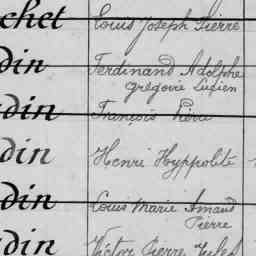 chet Louis Joseph Pierre
din Ferdinand Adolphe
Grégoire Lucien
din François Pierre
din Henri Hyppolite
din Louis Marie Amand
Pierre
din Victor Pierre Jules